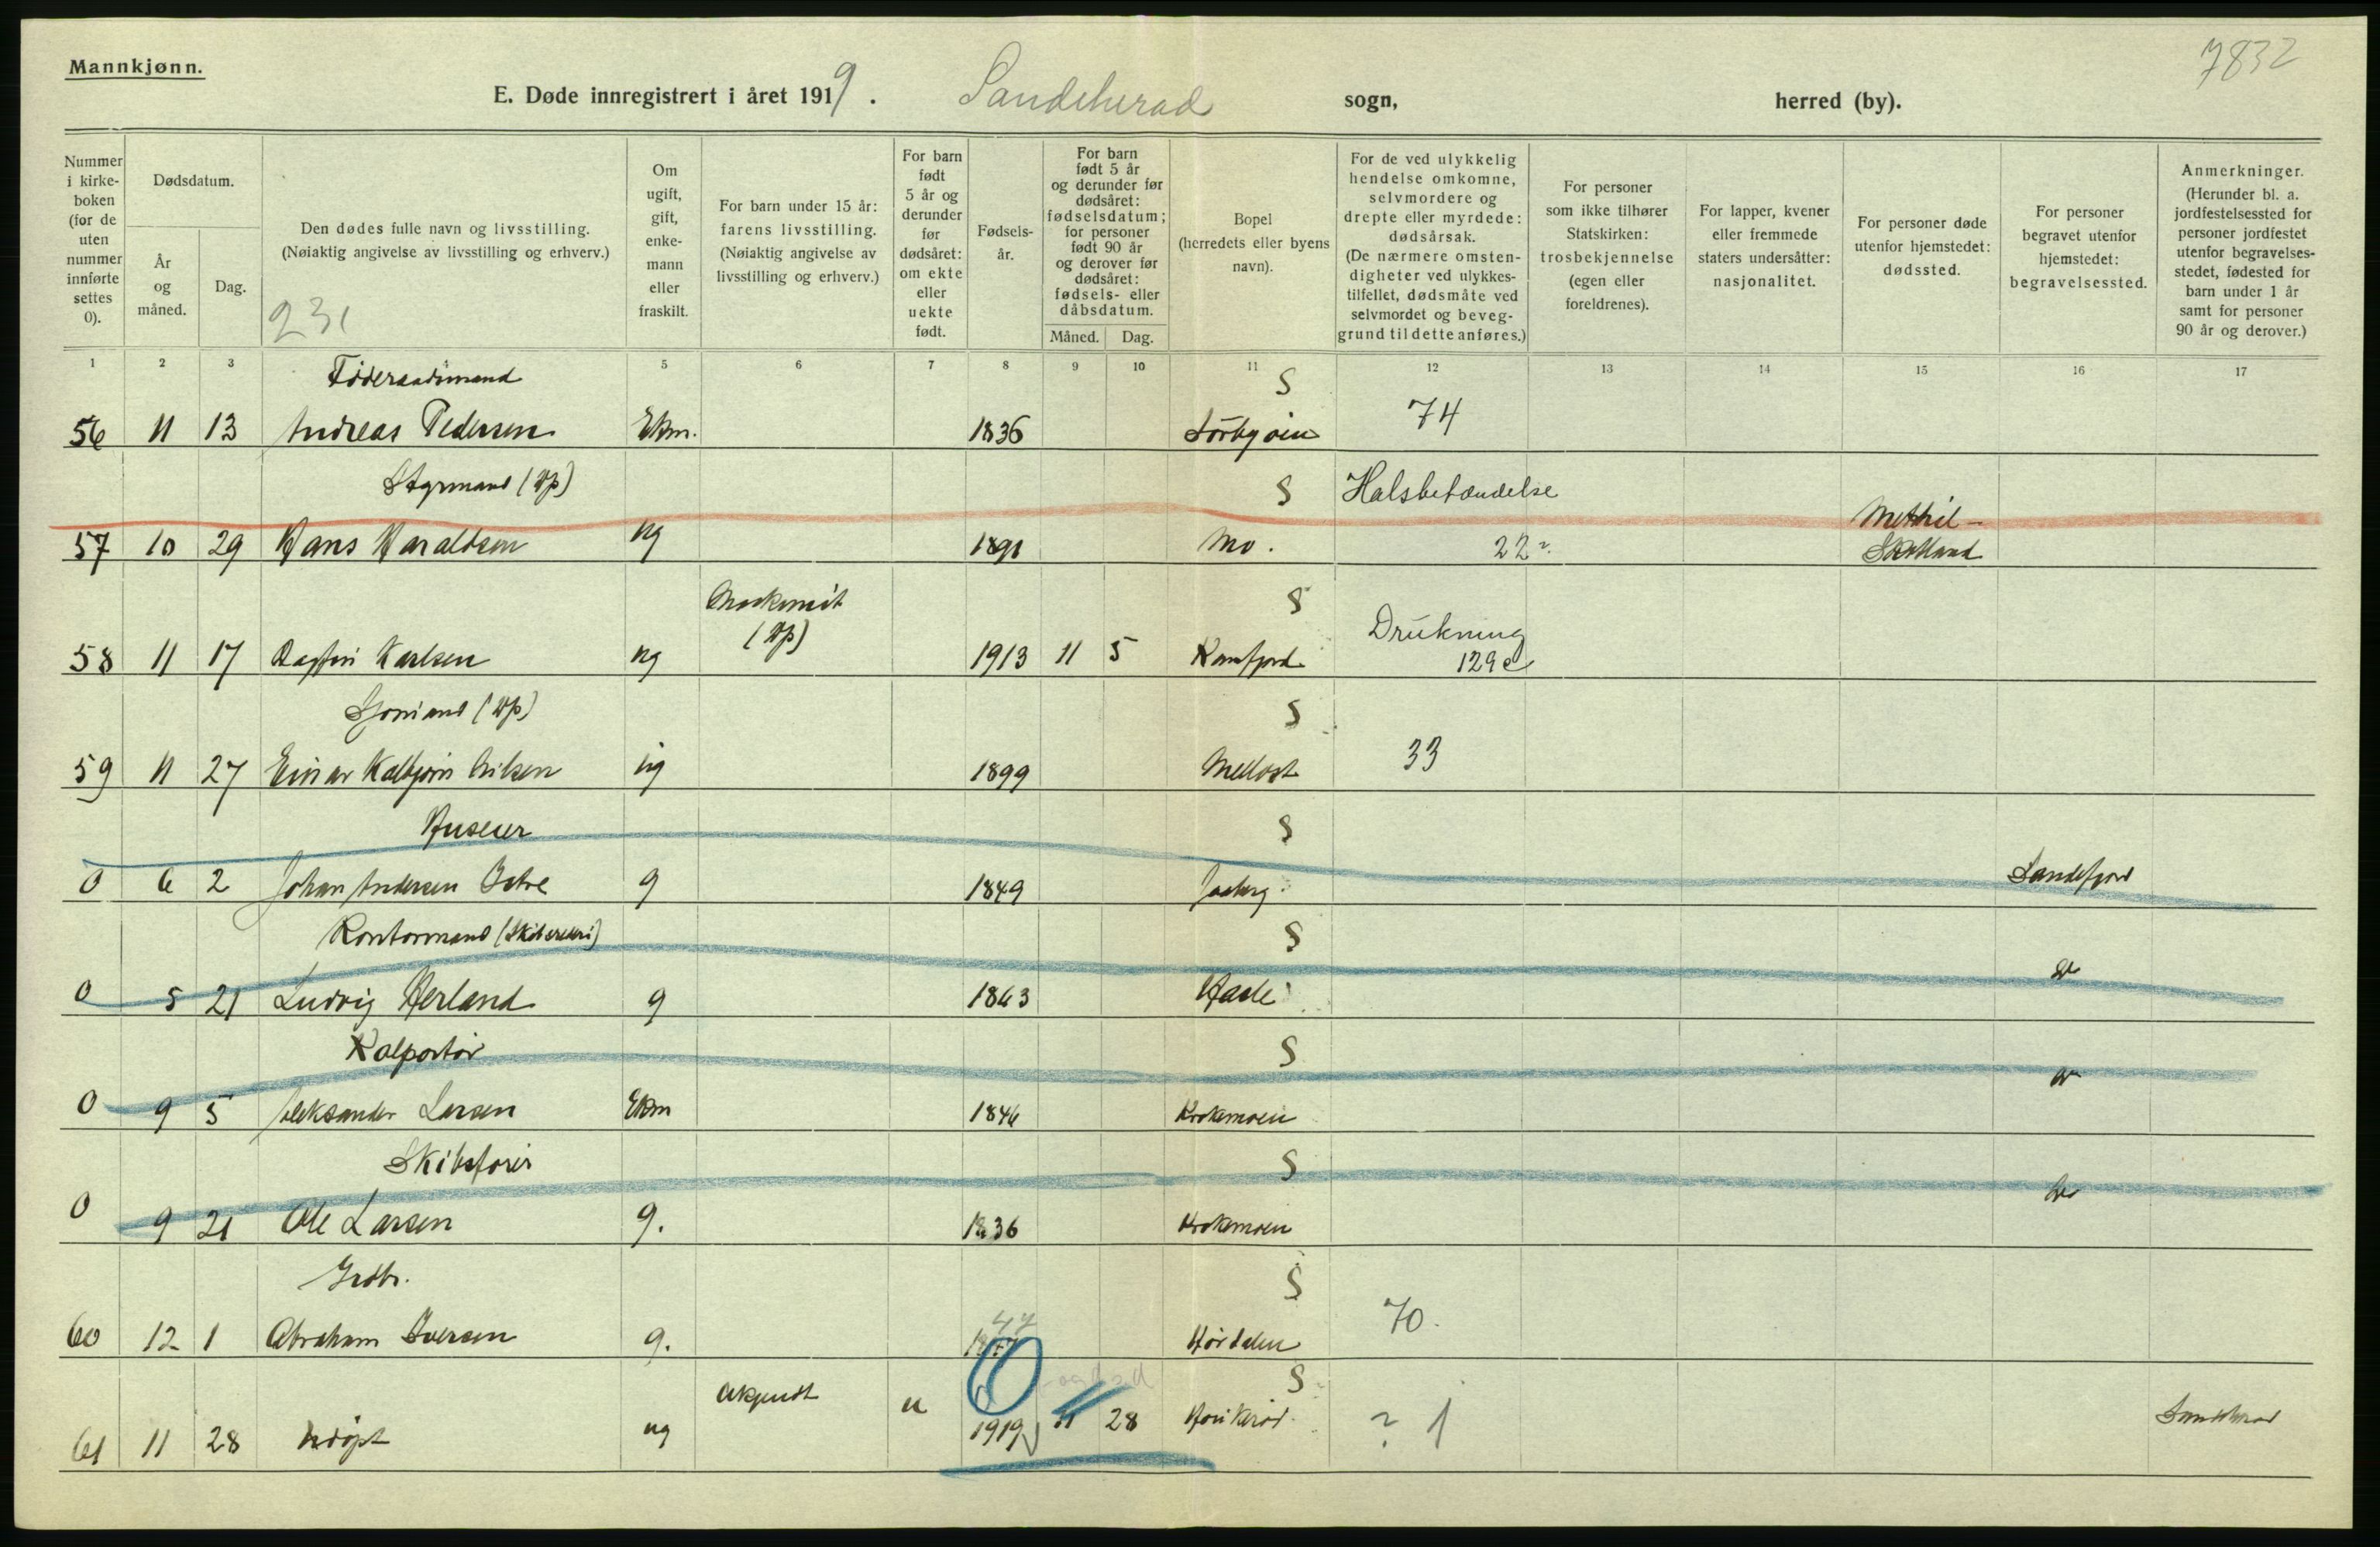 Mannkjønn.
7832
E. Døde innregistrert i året 1919. Sandeherad sogn, herred (by).
Nummer i kirkeboken (for de uten nummer innførte settes 0).
Dødsdatum.
År og måned.
Dag.
Den dødes fulle navn og livsstilling.
(Nøiaktig angivelse av livsstilling og erhverv.)
231
Om ugift, gift, enkemann eller fraskilt.
For barn under 15 år: farens livsstilling.
(Nøiaktig angivelse av livsstilling og erhverv.)
For barn født 5 år og derunder før dødsåret: om ekte eller uekte født.
Fødselsår.
For barn født 5 år og derunder før dødsåret: fødselsdatum; for personer født 90 år og derover før dødsåret: fødsels- eller dåbsdatum.
Måned. Dag.
Bopel (herredets eller byens navn).
For de ved ulykkelig hendelse omkomne, selvmordere og drepte eller myrdede: dødsårsak.
(De nærmere omstendigheter ved ulykkestilfellet, dødsmåte ved selvmordet og beveggrund til dette anføres.)
For personer som ikke tilhører Statskirken: trosbekjennelse (egen eller foreldrenes).
For lapper, kvener eller fremmede staters undersåtter: nasjonalitet.
For personer døde utenfor hjemstedet: dødssted.
For personer begravet utenfor hjemstedet: begravelsessted.
Anmerkninger.
(Herunder bl. a. jordfestelsessted for personer jordfestet utenfor begravelsesstedet, fødested for barn under 1 år samt for personer 90 år og derover.)
1 2 3 5 6 7 8 9 10 11 12 13 14 15 16 17
Føderaadsmand S
56 11 13 Andreas Pedersen Ekm. 1836 74
Styrmand (Dp) S Halsbetændelse Methil -
57 10 29 Hans Haraldsen ug 1891 Mo. 22 Skotland
Maskinist S
(Dp) Drukning
58 11 17 Dagfin Karlsen ug 1913 11 5 Kamfjord 129 c
Sjømand (Dp) S
59 11 27 Einar Kolbjørn Nilsen ug 1899 33
Huseier S
0 6 2 Johan Andersen Istre g 1849 Jaaberg Sandefjord
Kontormand (Skibsrederi) S
0 5 21 Ludvig Herland g 1863 Hasle do
Kolportør S
0 9 5 Aleksander Larsen Ekm 1846 Krokemoen do
Skibsfører S
0 9 21 Ole Larsen g. 1836 Krokemoen do
Grdbr. S
47
60 12 1 Abraham Iversen g. 70.
Ukjendt u S
61 11 28 Udøpt ug 1919 11 28 ? 1 Sandeherad